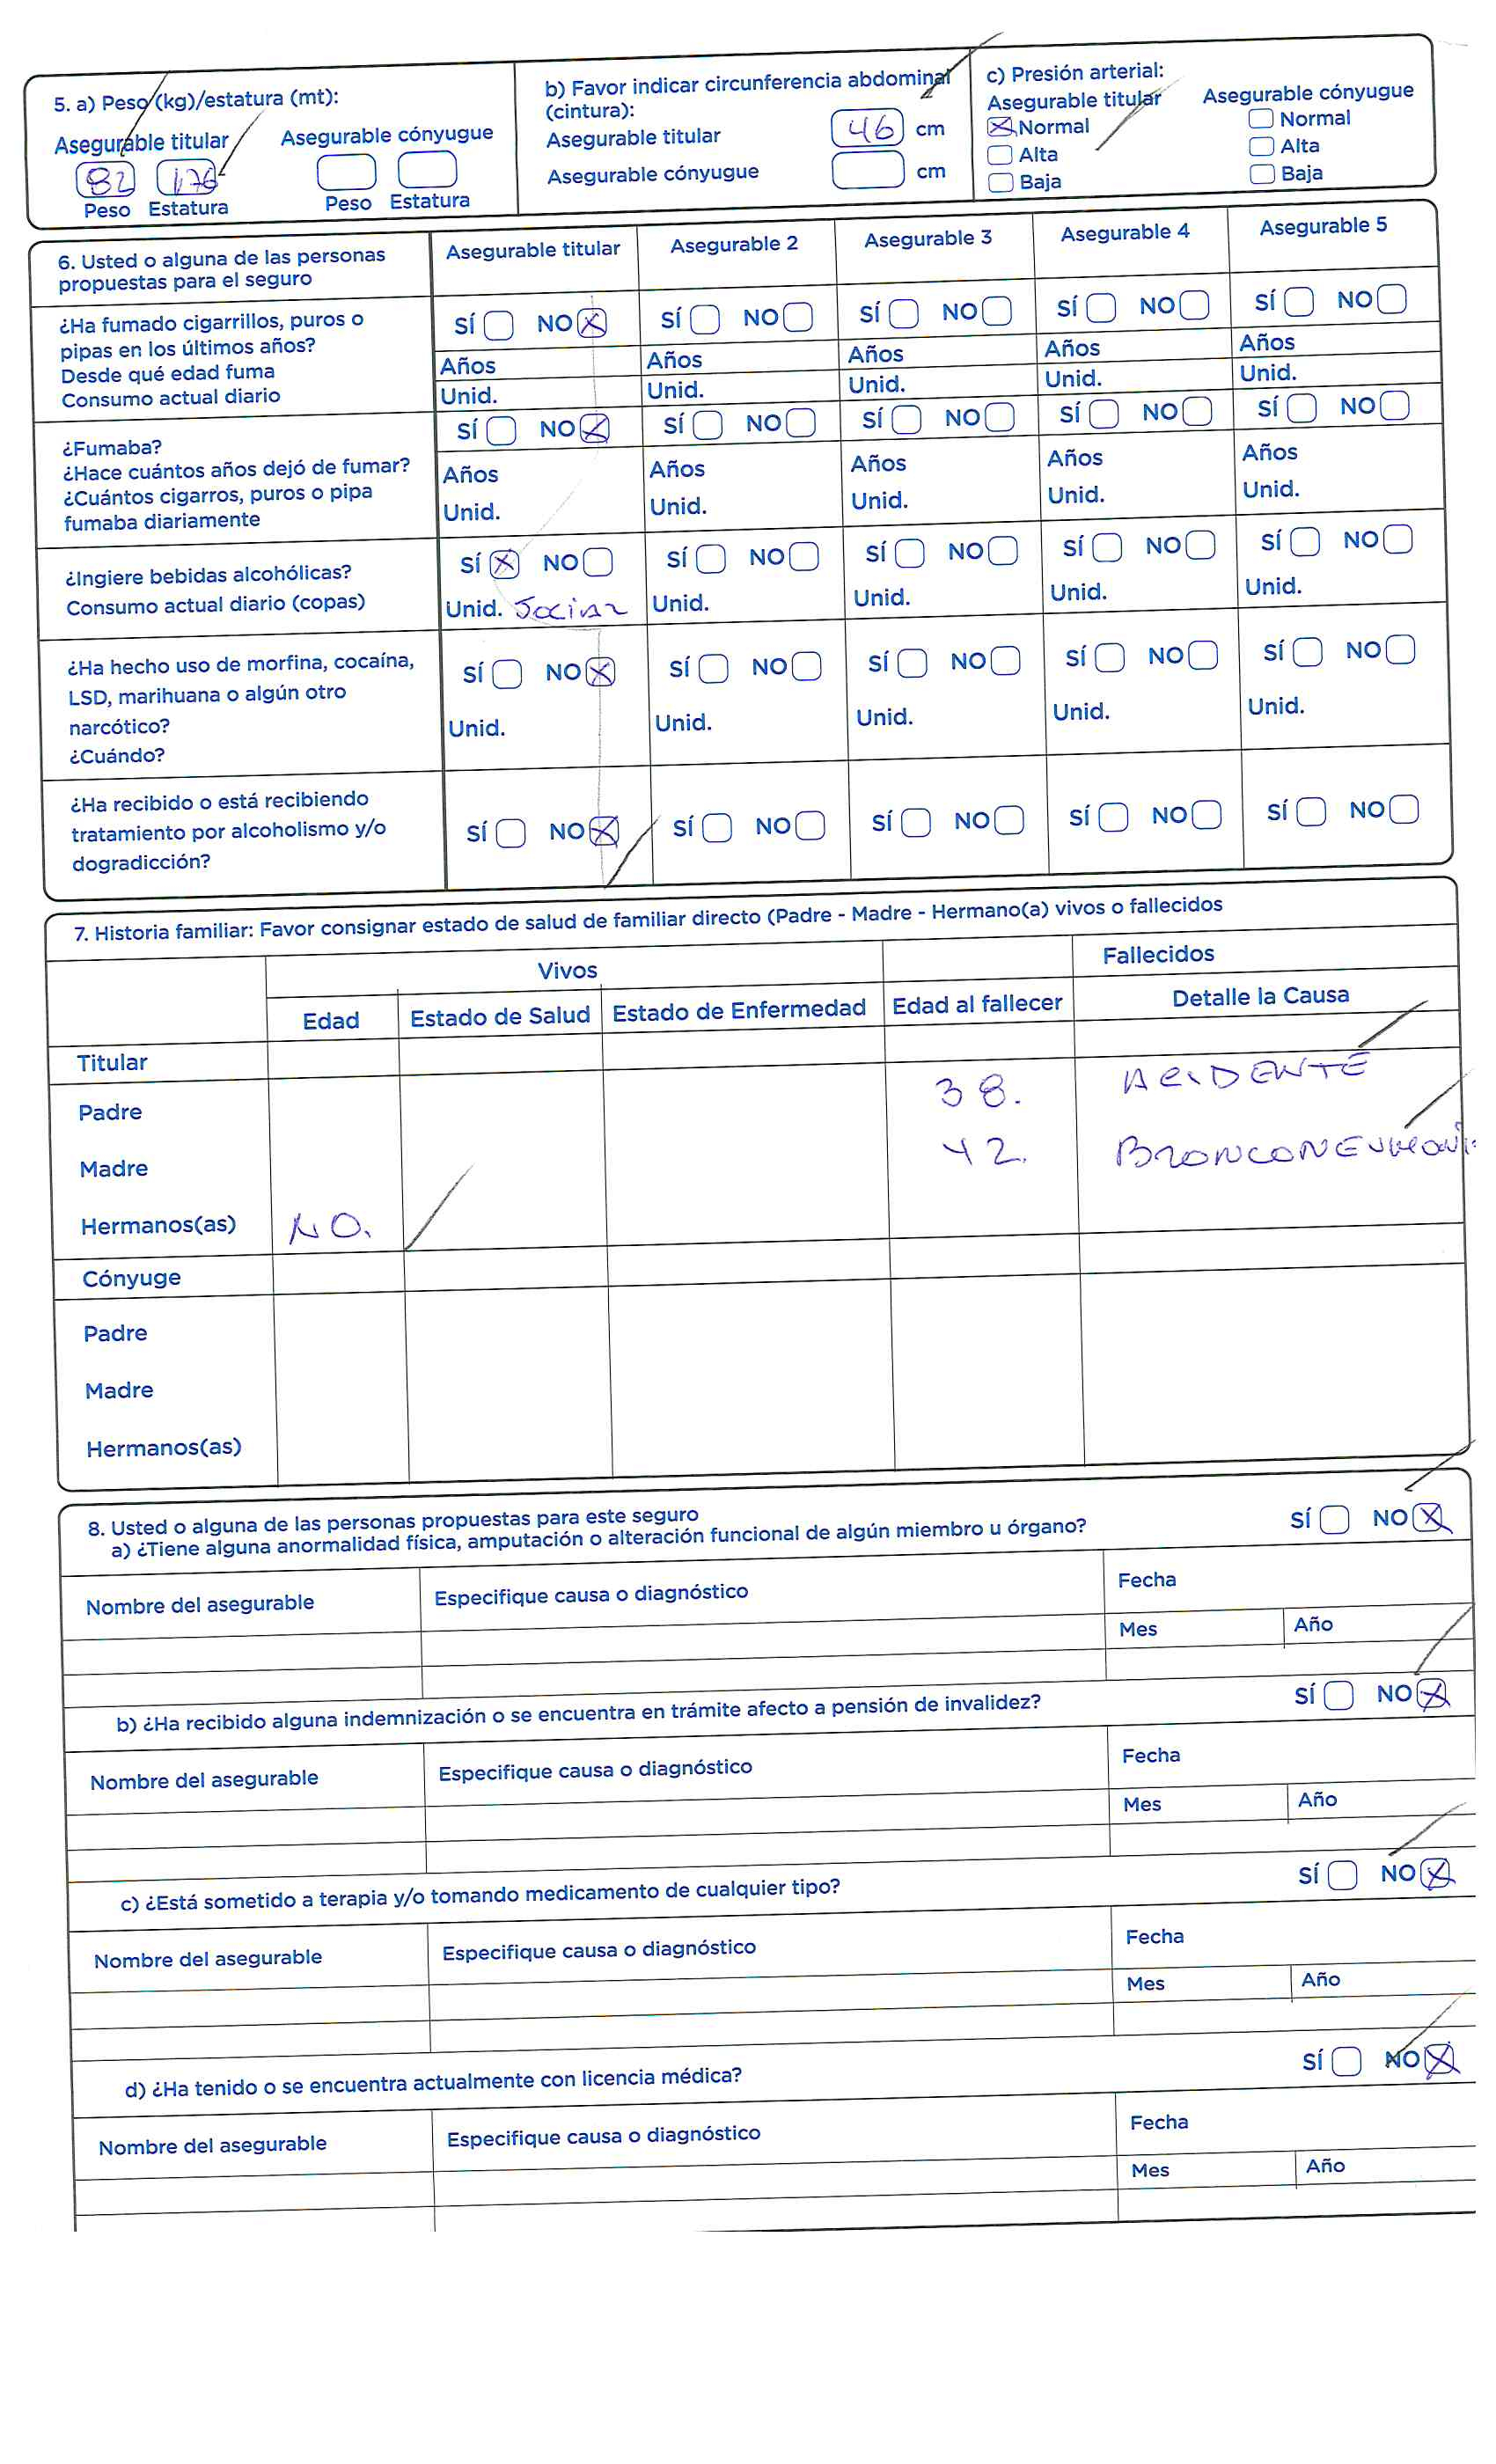 5. a) Peso (kg)/estatura (mt):
Asegurable titular Asegurable cónyugue
82 1,76
Peso Estatura Peso Estatura
b) Favor indicar circunferencia abdominal
(cintura):
Asegurable titular 46 cm
Asegurable cónyugue cm
c) Presión arterial:
Asegurable titular Asegurable cónyugue
Normal Normal
Alta Alta
Baja Baja
6. Usted o alguna de las personas
propuestas para el seguro
Asegurable titular Asegurable 2 Asegurable 3 Asegurable 4 Asegurable 5
¿Ha fumado cigarrillos, puros o
pipas en los últimos años?
Desde qué edad fuma
Consumo actual diario
SÍ NO X SÍ NO SÍ NO SÍ NO SÍ NO
Años Años Años Años Años
Unid. Unid. Unid. Unid. Unid.
¿Fumaba?
¿Hace cuántos años dejó de fumar?
¿Cuántos cigarros, puros o pipa
fumaba diariamente
SÍ NO X SÍ NO SÍ NO SÍ NO SÍ NO
Años Años Años Años Años
Unid. Unid. Unid. Unid. Unid.
¿Ingiere bebidas alcohólicas?
Consumo actual diario (copas)
SÍ X NO SÍ NO SÍ NO SÍ NO SÍ NO
Unid. Social Unid. Unid. Unid. Unid.
¿Ha hecho uso de morfina, cocaína,
LSD, marihuana o algún otro
narcótico?
¿Cuándo?
SÍ NO X SÍ NO SÍ NO SÍ NO SÍ NO
Unid. Unid. Unid. Unid. Unid.
¿Ha recibido o está recibiendo
tratamiento por alcoholismo y/o
dogradicción?
SÍ NO X SÍ NO SÍ NO SÍ NO SÍ NO
7. Historia familiar: Favor consignar estado de salud de familiar directo (Padre - Madre - Hermano(a) vivos o fallecidos
Vivos Fallecidos
Edad Estado de Salud Estado de Enfermedad Edad al fallecer Detalle la Causa
Titular
Padre 38. ACIDENTE
Madre 42. BRONCONEUMONI
Hermanos(as) NO.
Cónyuge
Padre
Madre
Hermanos(as)
8. Usted o alguna de las personas propuestas para este seguro
a) ¿Tiene alguna anormalidad física, amputación o alteración funcional de algún miembro u órgano? SÍ NO X
Nombre del asegurable Especifique causa o diagnóstico Fecha
Mes Año
b) ¿Ha recibido alguna indemnización o se encuentra en trámite afecto a pensión de invalidez? SÍ NO X
Nombre del asegurable Especifique causa o diagnóstico Fecha
Mes Año
c) ¿Está sometido a terapia y/o tomando medicamento de cualquier tipo? SÍ NO X
Nombre del asegurable Especifique causa o diagnóstico Fecha
Mes Año
d) ¿Ha tenido o se encuentra actualmente con licencia médica? SÍ NO X
Nombre del asegurable Especifique causa o diagnóstico Fecha
Mes Año